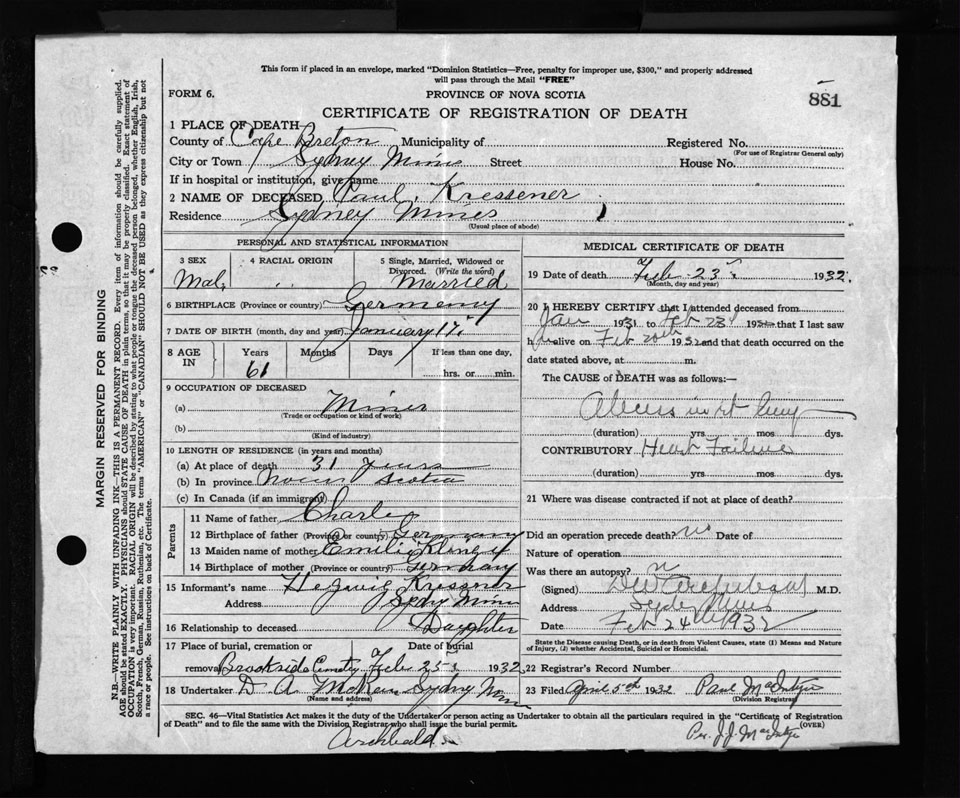 This form if placed in an envelope, marked "Dominion Statistics—Free, penalty for improper use, $300," and properly addressed
will pass through the Mail "FREE"
FORM 6.
PROVINCE OF NOVA SCOTIA
881
CERTIFICATE OF REGISTRATION OF DEATH
1 PLACE OF DEATH
County of Cape Breton Municipality of Registered No.
(For use of Registrar General only)
City or Town Sydney Mines Street House No.
If in hospital or institution, give name
2 NAME OF DECEASED Paul Kressener
Residence Sydney Mines
(Usual place of abode)
PERSONAL AND STATISTICAL INFORMATION
3 SEX 4 RACIAL ORIGIN 5 Single, Married, Widowed or
Divorced. (Write the word)
Male Married
6 BIRTHPLACE (Province or country) Germany
7 DATE OF BIRTH (month, day and year) January 17
8 AGE IN Years Months Days If less than one day,
61 hrs. or min.
9 OCCUPATION OF DECEASED
(a) Miner
(Trade or occupation or kind of work)
(b)
(Kind of industry)
10 LENGTH OF RESIDENCE (in years and months)
(a) At place of death 31 years
(b) In province Nova Scotia
(c) In Canada (if an immigrant)
Parents
11 Name of father Charles
12 Birthplace of father (Province or country) Germany
13 Maiden name of mother Emilie
14 Birthplace of mother (Province or country) Germany
15 Informant's name
Address Sydny Mines
16 Relationship to deceased Daughter
17 Place of burial, cremation or Date of burial
removal Brookside Cemetry Feb 25 1932
18 Undertaker D A McKean Sydny Mines
(Name and address)
MEDICAL CERTIFICATE OF DEATH
19 Date of death Feb 23 1932
(Month, day and year)
20 I HEREBY CERTIFY that I attended deceased from
Jan 1931 to Feb 23 193 that I last saw
h alive on Feb 20th 1932 and that death occurred on the
date stated above, at m.
The CAUSE of DEATH was as follows:—
Abcess in rt lung
(duration) yrs mos dys.
CONTRIBUTORY Heart Failure
(duration) yrs mos dys.
21 Where was disease contracted if not at place of death?
Did an operation precede death? no Date of
Nature of operation
Was there an autopsy? n
(Signed) M.D.
Address Sydney Mines
Date Feb 24th 1932
State the Disease causing Death, or in death from Violent Causes, state (1) Means and Nature
of Injury, (2) whether Accidental, Suicidal or Homicidal.
22 Registrar's Record Number
23 Filed April 5th 1932 Paul MacIntyre
(Division Registrar)
SEC. 46—Vital Statistics Act makes it the duty of the Undertaker or person acting as Undertaker to obtain all the particulars required in the "Certificate of Registration
of Death" and to file the same with the Division Registrar who shall issue the burial permit. (OVER)
Archbald
Per. J.J. MacIntyre
MARGIN RESERVED FOR BINDING
N.B.—WRITE PLAINLY WITH UNFADING INK—THIS IS A PERMANENT RECORD. Every item of information should be carefully supplied.
AGE should be stated EXACTLY. PHYSICIANS should STATE CAUSE OF DEATH in plain terms, so that it may be properly classified. Exact statement of
OCCUPATION is very important. RACIAL ORIGIN will be described by stating to what people or tongue the deceased person belonged, whether English, Irish,
Scotch, French, German, Russian, Ruthenian, etc. The terms "AMERICAN" or "CANADIAN" SHOULD NOT BE USED as they express citizenship but not
a race or people. See instructions on back of Certificate.